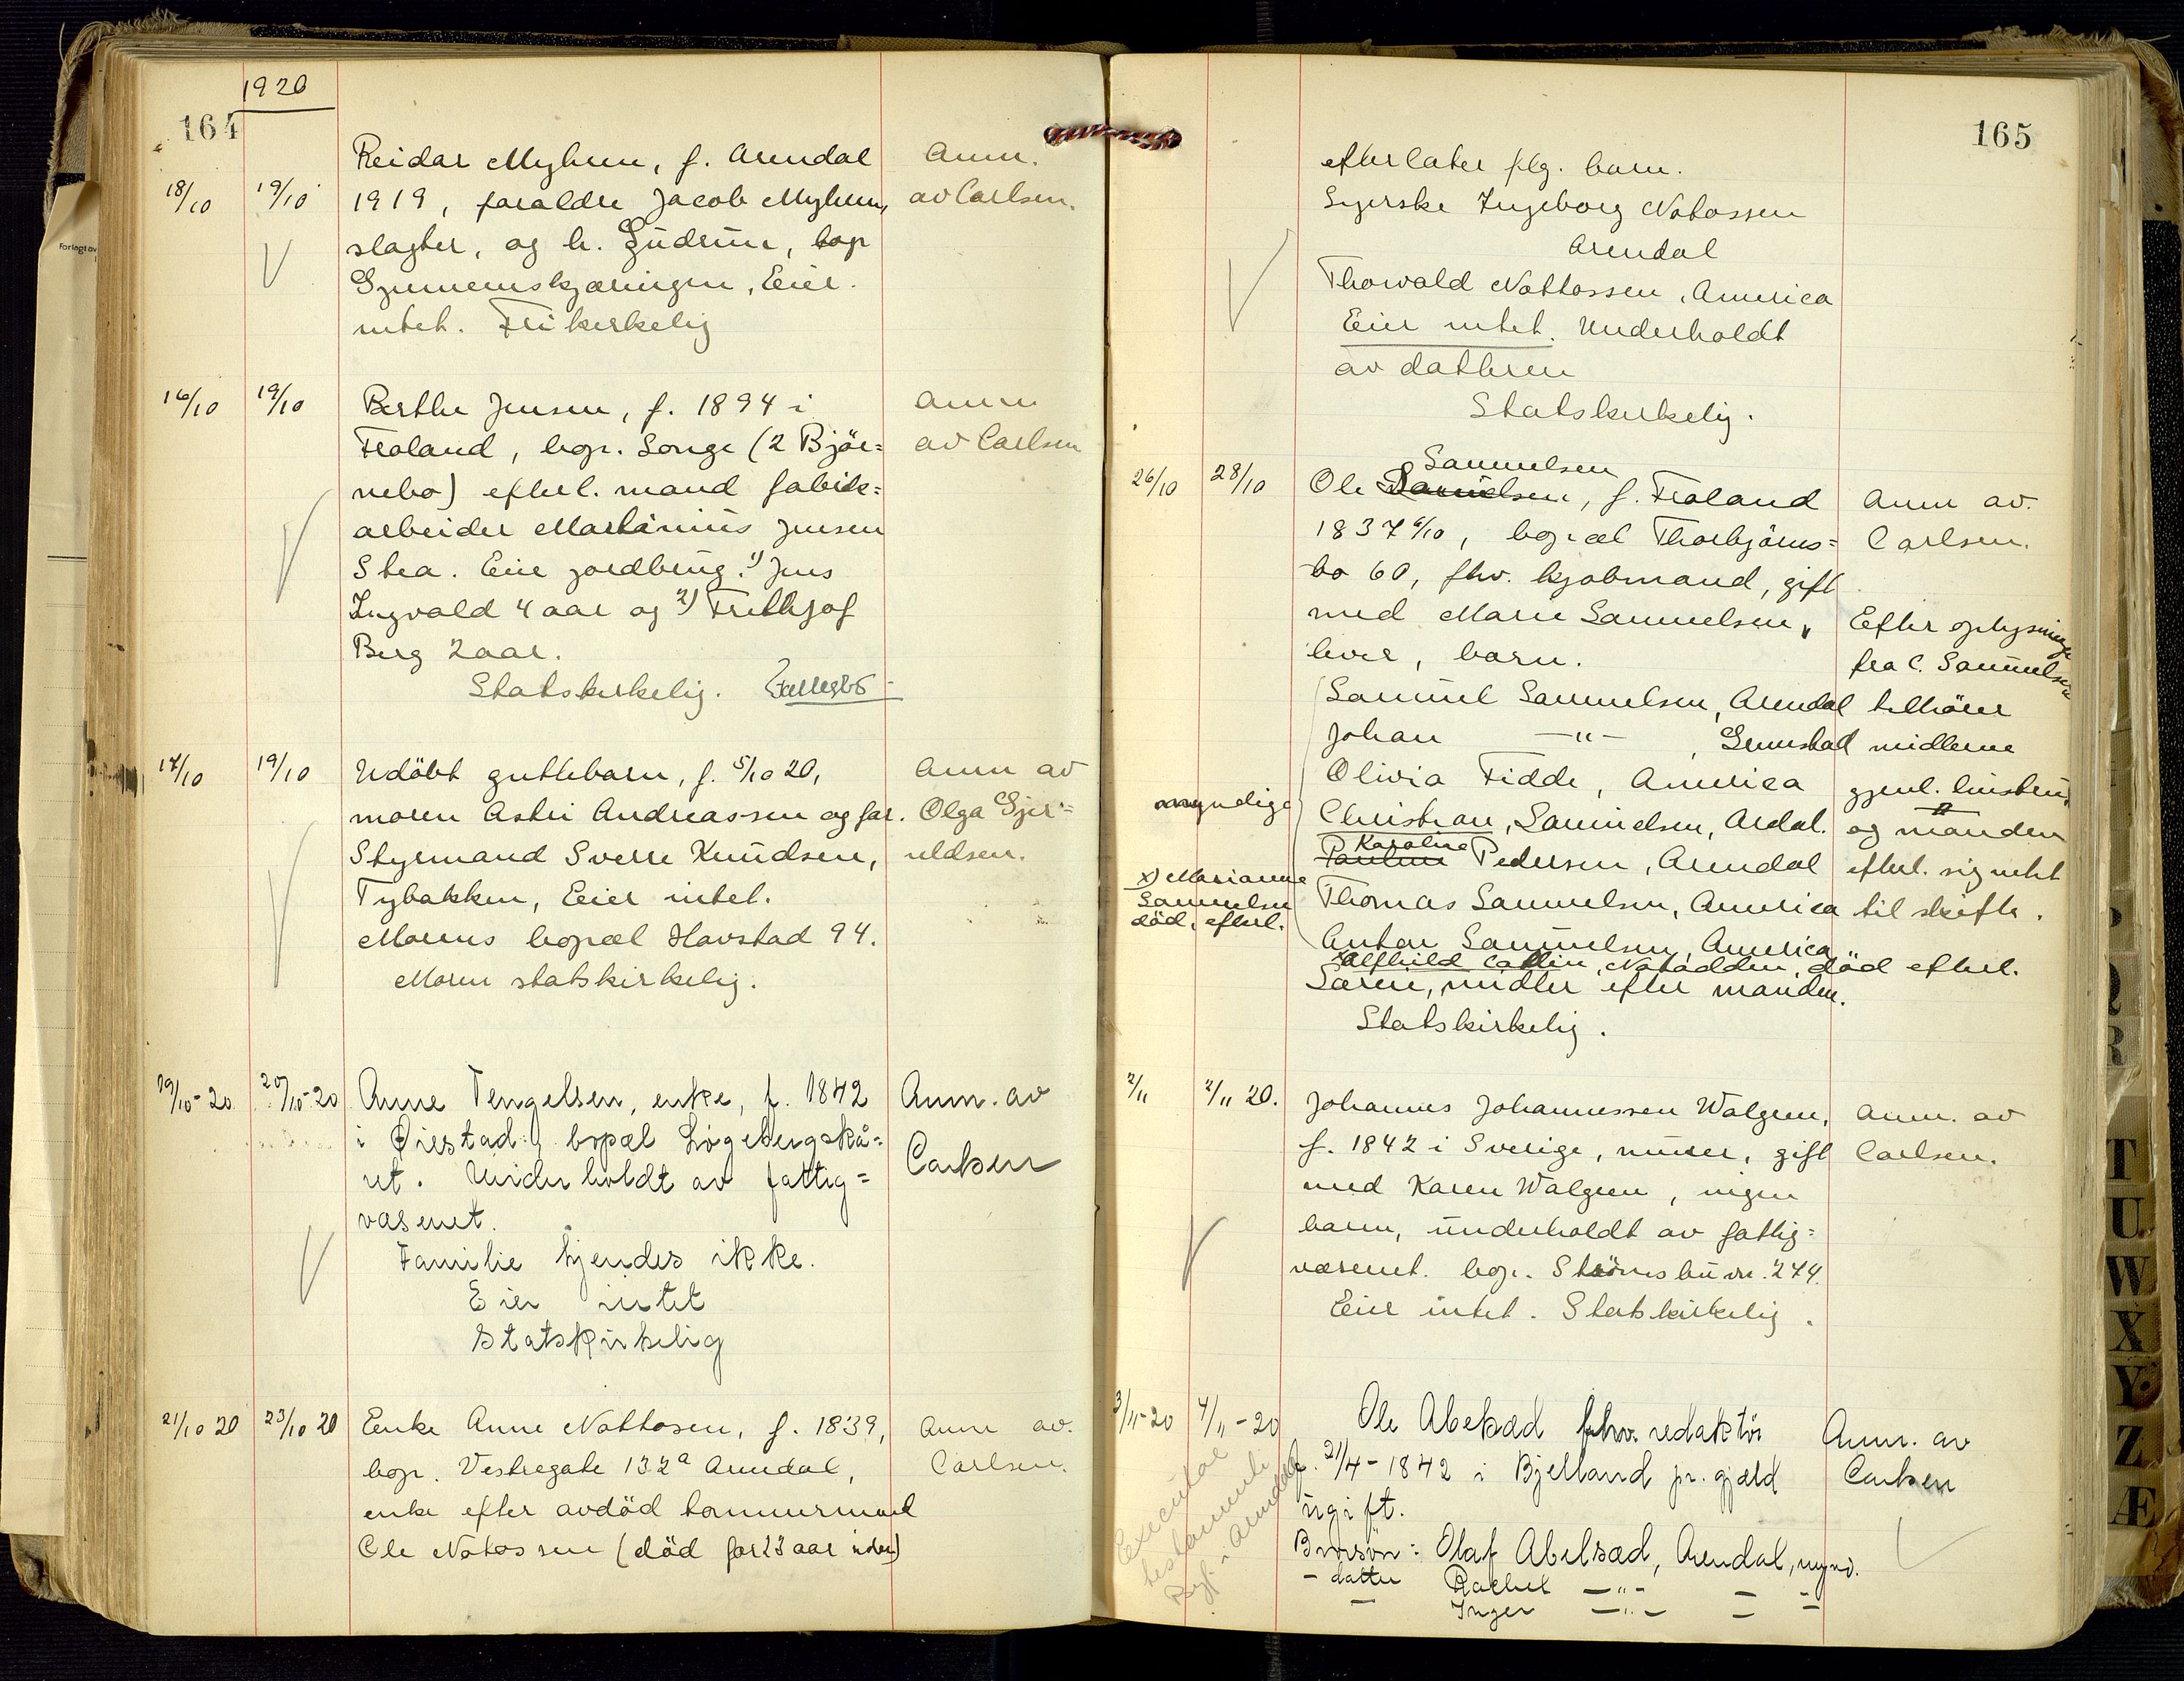 1920
164
Reidar Myhren, f. Arendal Anm.
18/10 19/10 1919, foraldre Jacob Myhren, av Carlsen.
slagter, og h. Gudrun, bop
Gjennemskjæringen, Eier
intet. Frikirkelig
16/10 19/10 Berthe Jensen, f. 1894 i Anm
Froland, bop. Songe (2 Björ= av Carlsen
nebo) efterl. mand fabrik=
arbeider Martinius Jensen
Stea. Eier jordbrug. 1) Jens
Ingvald 4 aar og 2) Frithjof
Berg 2 aar.
Statskirkelig.
17/10 19/10 Udöbt guttebarn, f. 5/10 20, Anm av
moren Astri Andreassen og far. Olga Gjer=
Styrmand Sverre Knudsen, uldsen.
Tybakken, Eier intet.
Morens bopæl Havstad 94.
Moren statskirkelig.
19/10-20 20/10-20 Anne Tengelsen, enke, f. 1842 Anm. av
i Øiestad bopæl Longebergskå= Carlsen
ret. Underholdt av fattig=
væsenet.
Familie kjendes ikke.
Eier intet
Statskirkelig
21/10 20 23/10 20 Enke Anne Nottosen, f. 1839, Anm av.
bop. Vestregate 132a Arendal, Carlsen.
enke efter avdöd tömmermand
Ole Notossen (död for 23 aar siden)
165
efterlater flg. barn.
Syerske Ingeborg Notossen
Arendal
Thorvald Nottossen, America
Eier intet. Underholdt
av datteren
Statskirkelig.
Samuelsen
26/10 28/10 Ole Danielsen, f. Froland Anm av.
1837 6/10, bopæl Thorbjörns= Carlsen.
bo 60, fhv. kjøbmand, gift
med Marie Samuelsen, Efter oplysning
lever, barn. fra C. Samuelsen
Samuel Samuelsen, Arendal tilhörer
Johan —"— , Grimstad midlerne
Olivia Fidde, America gjenl. hustru,
myndige Christian, Samuelsen, Ardal. og manden
Karoline
Pauline Pedersen, Arendal efterl. sig intet
x) Marianne
Samuelsen Thomas Samuelsen, America til skifte.
död, efterl.
Anton Samuelsen, America
x Alfhild Catlin, Notodden, död efterl.
Særeie, midler efter manden.
Statskirkelig.
2/11 2/11 20. Johannes Johannessen Walgren, Anm. av
f. 1842 i Sverige, murer, gift Carlsen.
med Karen Walgren, ingen
barn, underholdt av fattig=
væsenet. bop. Strömsbu nr. 274.
Eier intet. Statskirkelig.
3/11-20 4/11-20 Ole Abelsæd fhv. redaktör Anm. av
f. 21/4-1842 i Bjelland pr. gjæld Carlsen
ugift.
Executor
testamenti
i Arendal
Brorsön: Olaf Abelsæd, Arendal, mynd.
- datter Rachel —"— — =
— Inger —"— = =
T
U
W
X
Y
Z
Æ